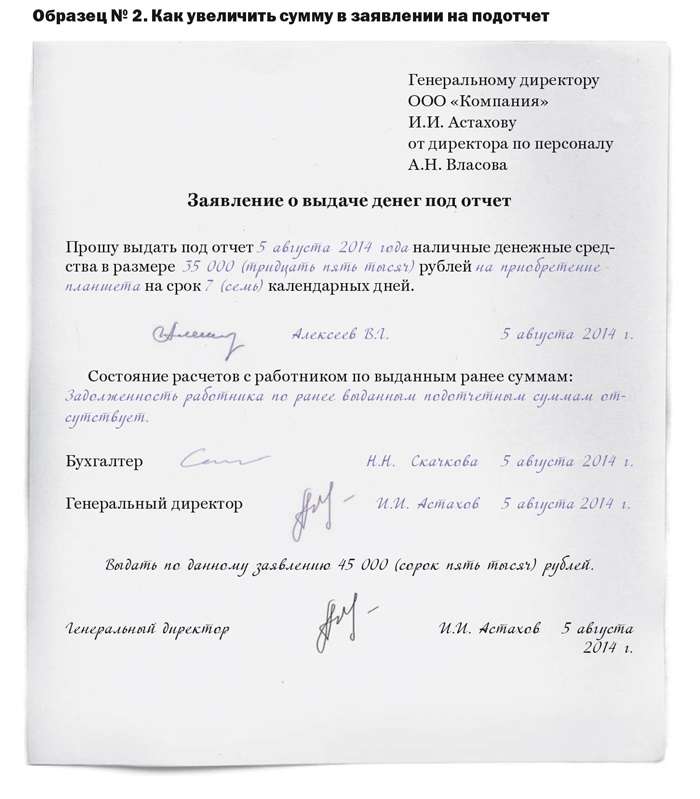 Образец № 2. Как увеличить сумму в заявлении на подотчет
Генеральному директору
ООО «Компания»
И.И. Астахову
от директора по персоналу
А.Н. Власова
Заявление о выдаче денег под отчет
Прошу выдать под отчет 5 августа 2014 года наличные денежные сред-
ства в размере 35 000 (тридцать пять тысяч) рублей на приобретение
планшета на срок 7 (семь) календарных дней.
Алексеев В.Л. 5 августа 2014 г.
Состояние расчетов с работником по выданным ранее суммам:
Задолженность работника по ранее выданным подотчетным суммам от-
сутствует.
Бухгалтер Н.Н. Скачкова 5 августа 2014 г.
Генеральный директор И.И. Астахов 5 августа 2014 г.
Выдать по данному заявлению 45 000 (сорок пять тысяч) рублей.
Генеральный директор И.И. Астахов 5 августа
2014 г.